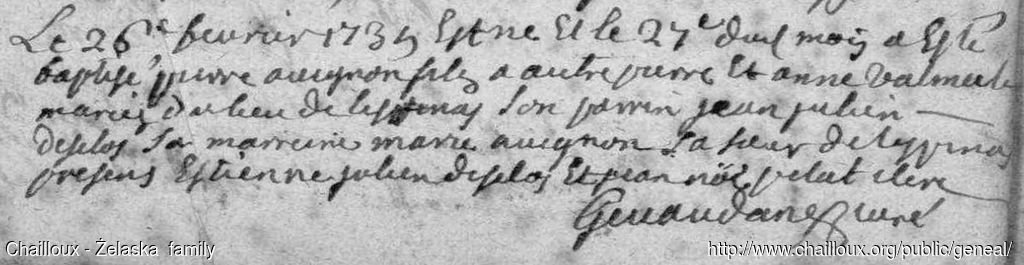 Le 26e fevrier 1735 Est ne Et le 27e dud mois a Esté
baptisé pierre avignon fils a autre pierre Et anne Valmale
mariés du lieu de lespinas Son parrin jean julien
desplos Sa marreine marie avignon Sa sœur de lespinas
presens Estienne julien desplos Et jean pelat clerc
Gevaudan Curé
Chailloux - Żelaska family
http://www.chailloux.org/public/geneal/